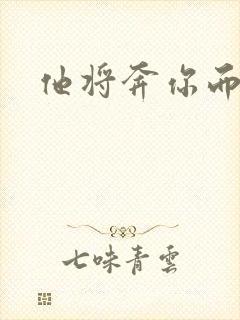 他将奔你而
七味青雲